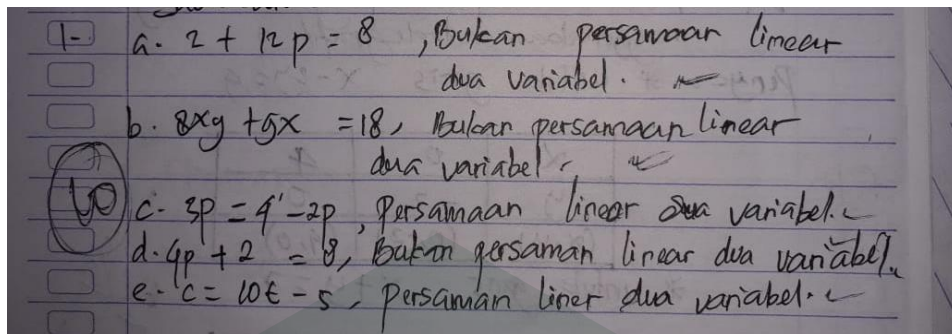 1- a. 2 + 12p = 8 , Bukan persamaan linear
dua variabel.
b. 8xy + 5x = 18, Bukan persamaan linear
dua variabel.
10
c. 3p = q - 2p, Persamaan linear dua variabel.
d. 4p + 2 = 8, Bukan persaman linear dua variabel.
e. c = 10t - 5, persaman liner dua variabel.